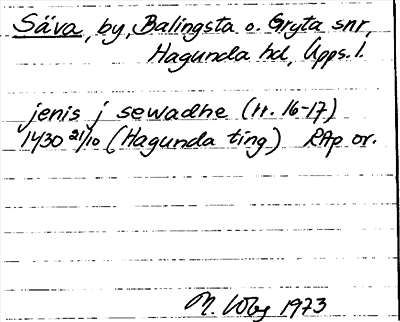 Säva, by, Balingsta o. Gryta snr,
Hagunda hd, Upps. l.
jenis j sewadhe (r. 16-17)
1430 21/10 (Hagunda ting) RAp or.
M. 1973